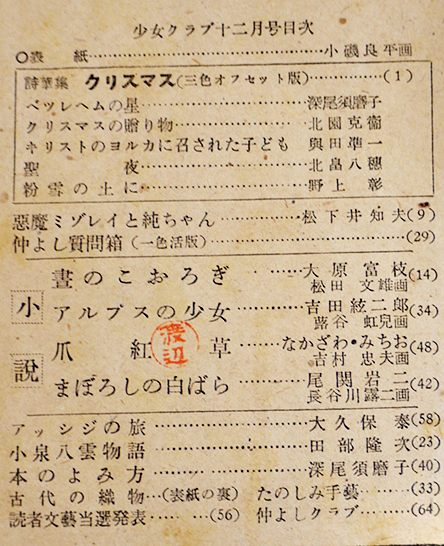 少女クラブ十二月号目次
○表紙……………………小磯良平画
詩華集 クリスマス(三色オフセット版)…………(1)
ベツレヘムの星………………深尾須磨子
クリスマスの贈り物…………北園克衞
キリストのヨルカに召された子ども 與田準一
聖夜…………………北畠八穂
粉雪の土に…………………野上彰
惡魔ミゾレイと純ちゃん…………松下井知夫(9)
仲よし質問箱(一色活版)……………………(29)
小説
晝のこおろぎ…………大原富枝 松田文雄画(14)
アルプスの少女…………吉田絃二郎 蕗谷虹兒画(34)
爪紅草…………なかざわ・みちお 吉村忠夫画(48)
まぼろしの白ばら…………尾関岩二 長谷川露二画(42)
渡辺
アッシジの旅…………………大久保泰(58)
小泉八雲物語…………………田部隆次(23)
本のよみ方…………………深尾須磨子(40)
古代の織物……(表紙の裏) たのしみ手藝……(33)
読者文藝当選発表……(56) 仲よしクラブ……(64)